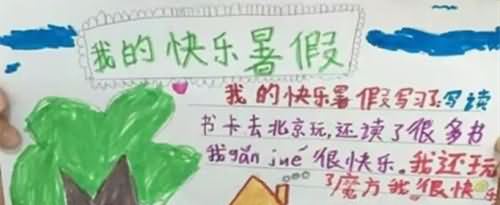 我的快乐暑假
我的快乐暑假写习了写读
书卡去北京玩,还读了很多书
我gǎn jué很快乐。我还玩
了魔方我很快乐